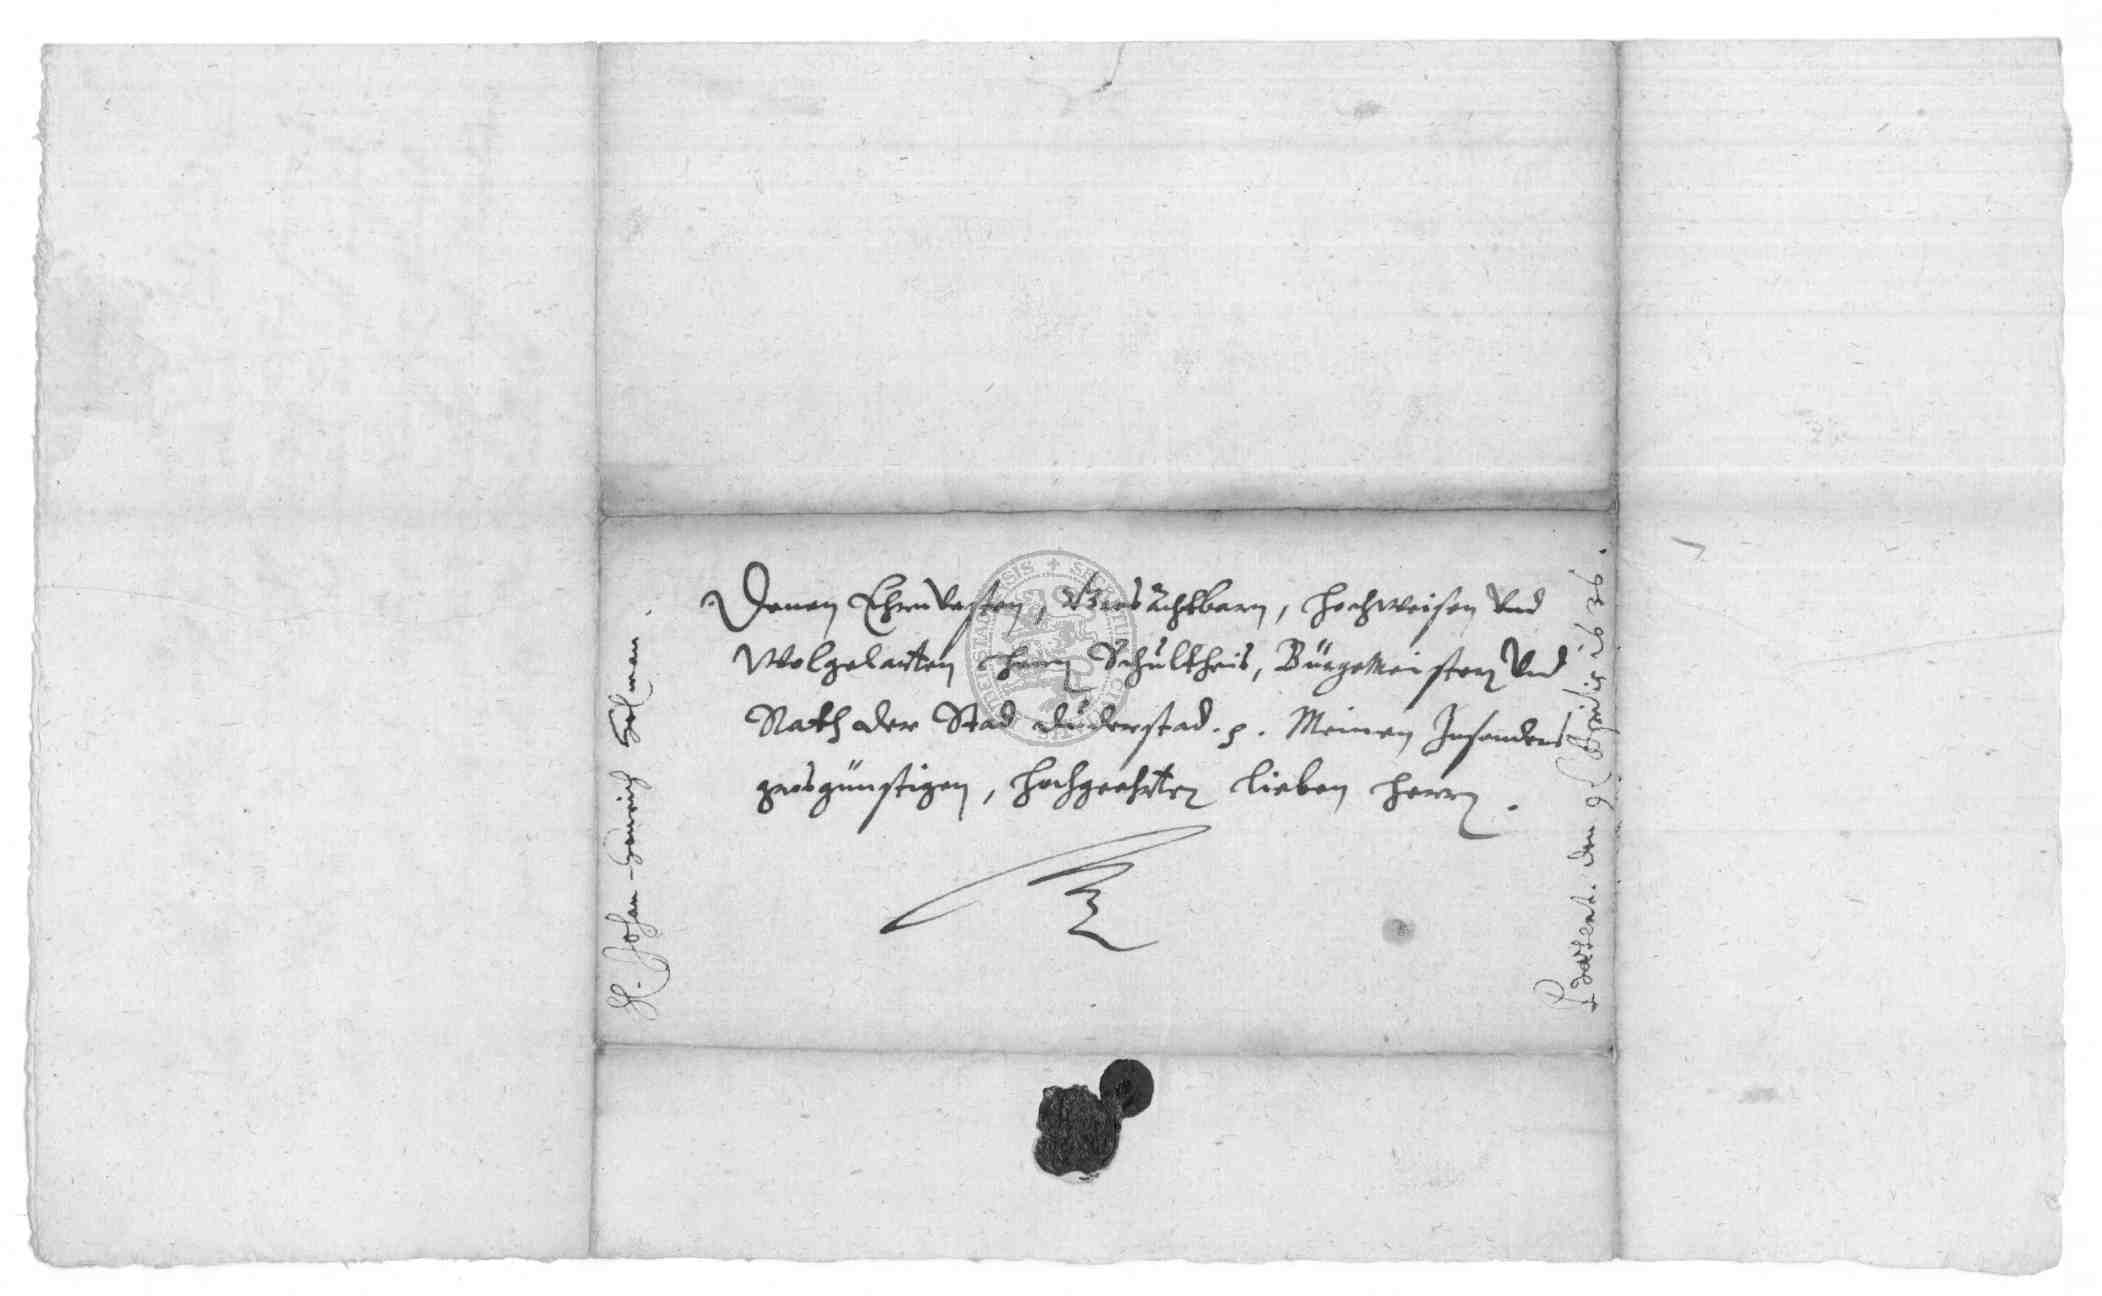 Denen Ehrnvesten, GrosAchtbarn, hochweisen Vnd
Wolgelarten herrn Schultheis, Bürgemeistern Vnd
Rath der Stad Duderstad. p. Meinen Insonders
grosgünstigen, hochgeehrten lieben herrn.
H. Johan Henrich
den 9 Aprilis